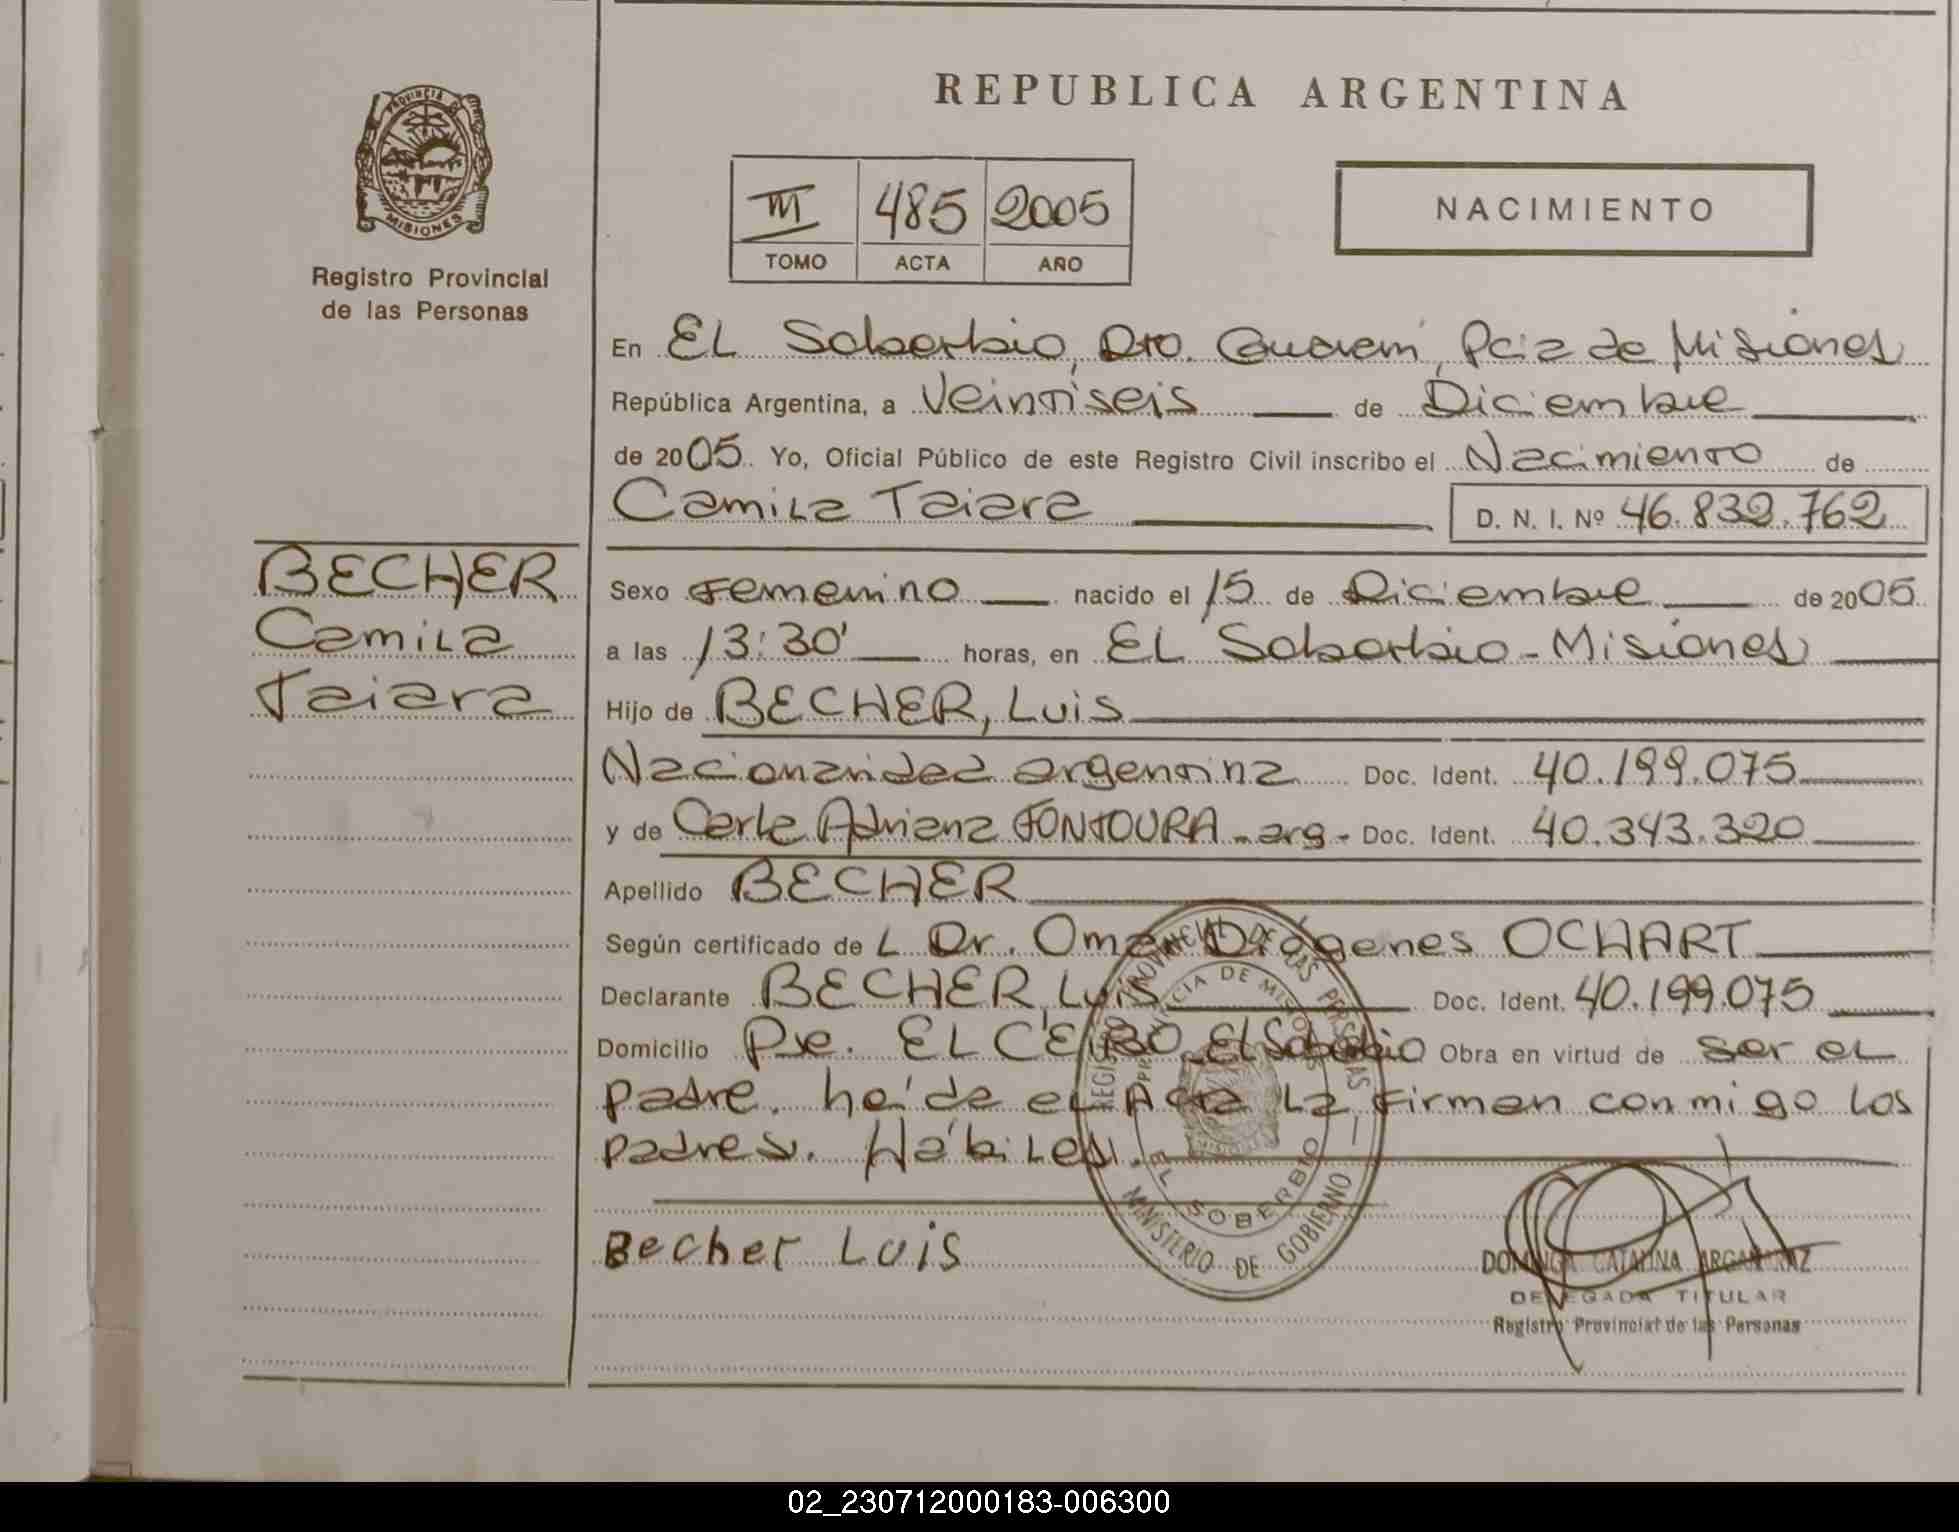 REPUBLICA ARGENTINA
PROVINCIA DE
MISIONES
Registro Provincial
de las Personas
III 485 2005
TOMO ACTA AÑO
NACIMIENTO
En EL Soberbio, Dto. Guaraní, Pcia de Misiones
República Argentina, a Veintiseis de Diciembre
de 2005. Yo, Oficial Público de este Registro Civil inscribo el Nacimiento de
Camila Taiara D. N. I. Nº 46.832.762
BECHER
Camila
Taiara
Sexo Femenino nacido el 15 de Diciembre de 2005
a las 13:30' horas, en EL Soberbio - Misiones
Hijo de BECHER, Luis
Nacionalidad argentina Doc. Ident. 40.199.075
y de Carla Adriana FONTOURA - arg - Doc. Ident. 40.343.320
Apellido BECHER
Según certificado de L Dr. Omar Diógenes OCHART
Declarante BECHER, Luis Doc. Ident. 40.199.075
Domicilio Pje. EL CEIBO El Soberbio Obra en virtud de ser el
padre. heída el Acta La Firman conmigo los
padres. Hábiles.
REGISTRO PROVINCIAL DE LAS PERSONAS
PROVINCIA DE MISIONES
EL SOBERBIO
MINISTERIO DE GOBIERNO
Becher Luis
DOMINGA CATALINA ARGAÑARAZ
DELEGADA TITULAR
Registro Provincial de las Personas
02_230712000183-006300